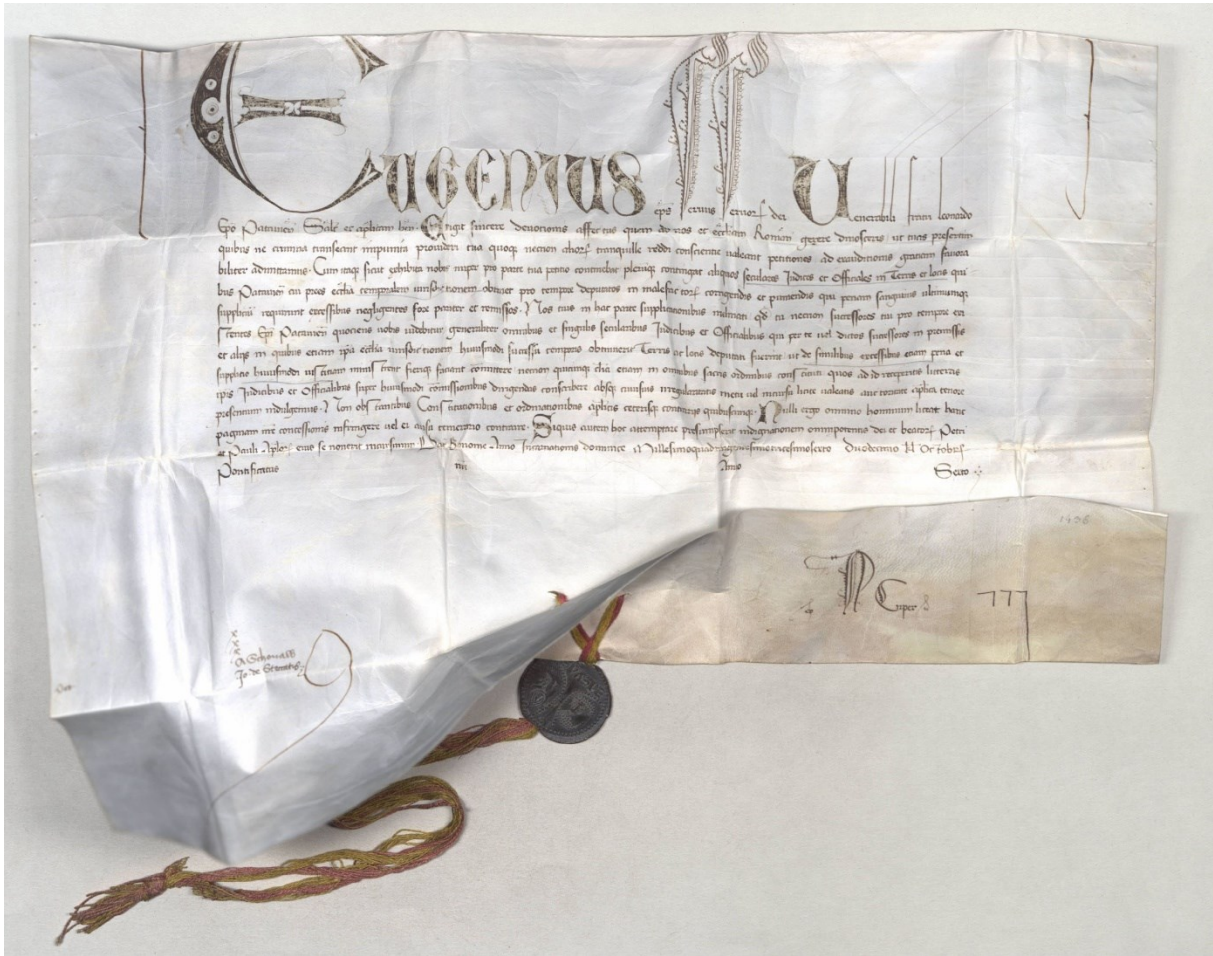 Eugenius eps servus servorꝝ dei Venerabili fratri leonardo
Epo Patavien Salt et aplicam ben. Exigit sincere devotionis affectus quem ad nos et eccliam Roman gerere dinosceris ut tuis presertim
quibus ne crimina transeant impunita provideri tua quoqꝫ necnon alioꝝ tranquille reddi conscientie valeant petitionibus ad exauditionis gratiam favora
biliter admittamus. Cum itaqꝫ sicut exhibita nobis nuper pro parte tua petitio continebat plerūqꝫ contingat aliquos seculares Iudices et Officiales in Terris et locis qui
bus Patavien tui preest ecclia temporalem iurisdictionem obtinet pro tempore deputatos in malefactoꝝ corrigendis et puniendis qui penam sanguinis ultimumqꝫ
suppliciū requirunt excessibus negligentes fore pariter et remissos. Nos tuis in hac parte supplicationibus inclinati qd tu necnon successores tui pro tempore exi
stentes Epi Patavien quotiens vobis videbitur generaliter omnibus et singulis secularibus Iudicibus et Officialibus qui per te vel dictos successores in premissis
et aliis in quibus etiam ipa ecclia iurisdictionem huiusmodi successu temporis obtinuerit Terris ac locis deputati fuerint ut de similibus excessibus etiam pena et
supplicio huiusmodi iusticiam ministrent fieriqꝫ faciant committere necnon quicunqꝫ clici etiam in omnibus sacris ordinibus constituti quos ad id requiretis litteras
ipis Iudicibus et Officialibus super huiusmodi comissionibus dirigendas conscribere absqꝫ cuiusvis irregularitatis metu vel incursu licite valeant auctoritate aplica tenore
presentium indulgemus. Non obstantibus Constitutionibus et ordinationibus aplicis ceterisqꝫ contrariis quibuscunqꝫ. Nulli ergo omnino hominum liceat hanc
paginam nre concessionis infringere vel ei ausu temerario contraire. Siquis autem hoc attemptare presumpserit indignationem omnipotentis dei et beatoꝝ Petri
et Pauli Aploꝝ eius se noverit incursurum. Dat Bononie Anno Incarnationis dominice Millesimoquadringentesimotricesimosexto Duodecimo kl Octobris
Pontificatus nri Anno Sexto
1436
N Cuper
x
x
x
A Schonaw
Jo. de Steccatis